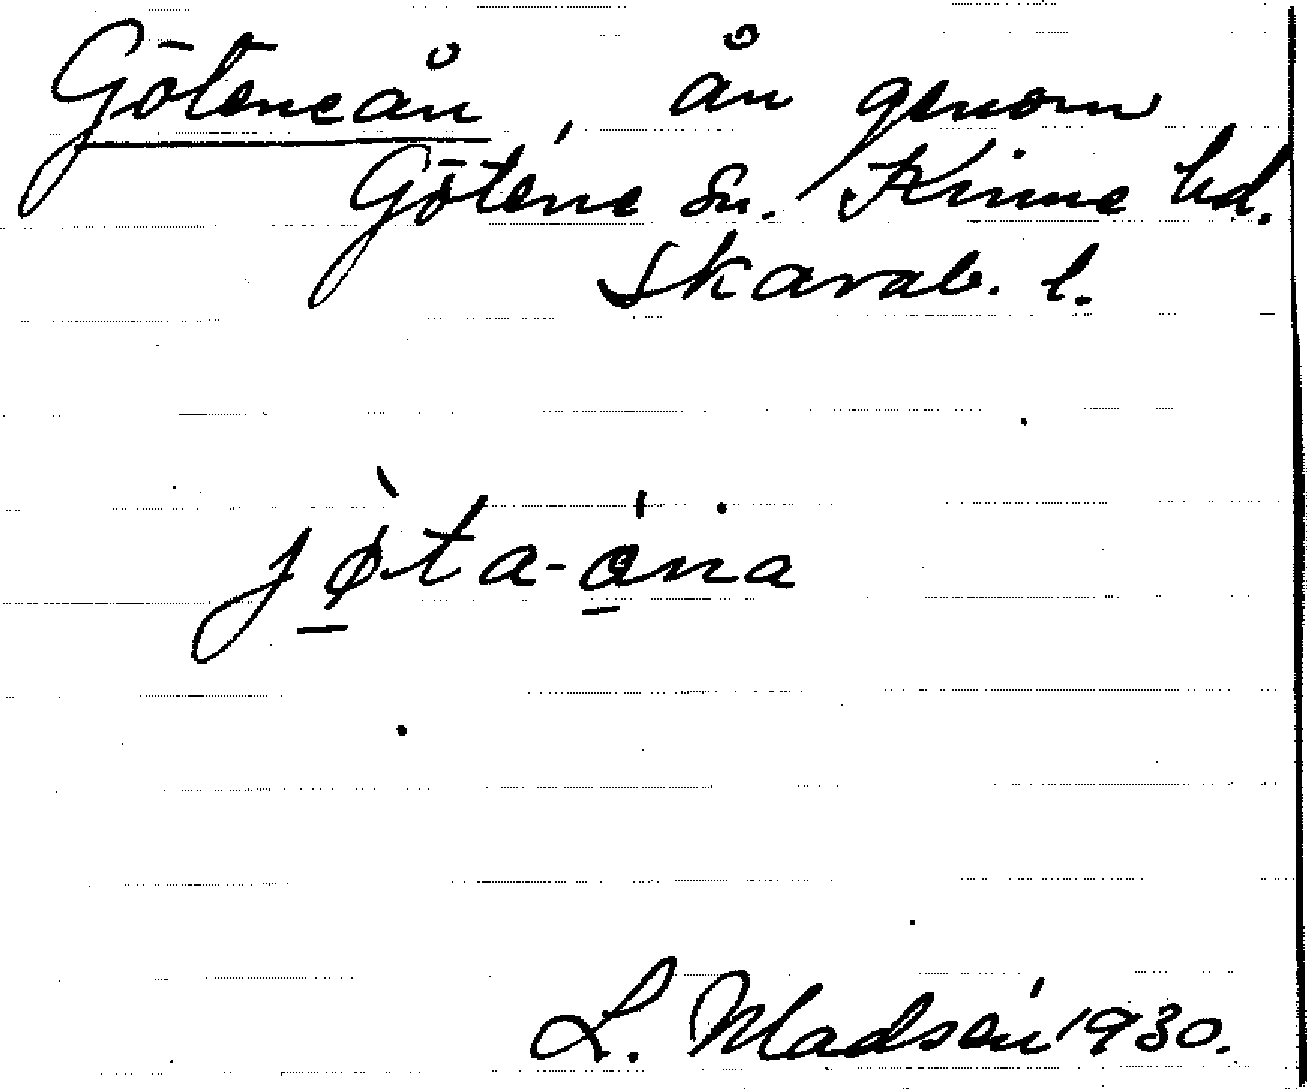 Göteneån, ån genom
Götene sn. Kinne hd.
Skarab. l.
jø̀ta-åna
L. Madsén 1930.